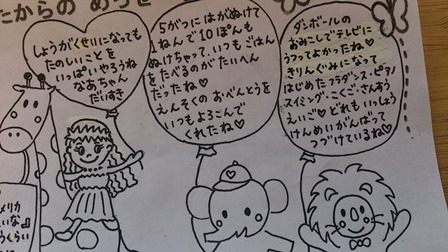 たからの めっせ
しょうがくせいになっても
たのしいことを
いっぱいやろうね
なあちゃん
だいすき
5がつに はがぬけて
1ねんで 10ぽんも
ぬけちゃって、いつも ごはん
をたべるのが たいへん
だったね♡
えんそくの おべんとうを
いつもよろこんで
くれたね♡
ダンボールの
おみこしでテレビに
うつってよかったね♡
きりんぐみになって
はじめたフラダンス・ピアノ
スイミング・こくご・さんすう
えいご♡どれもいっしょう
けんめいがんばって
つづけているね♡
メリカ